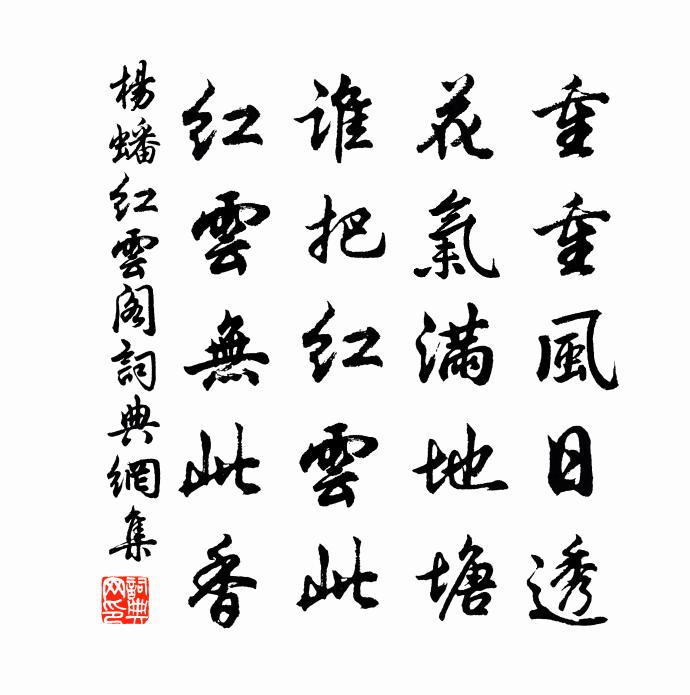 重重風日透
花氣滿地塘
誰把紅雲此
紅雲無此香
楊蟠紅雲閣詞典網集
詞典網印